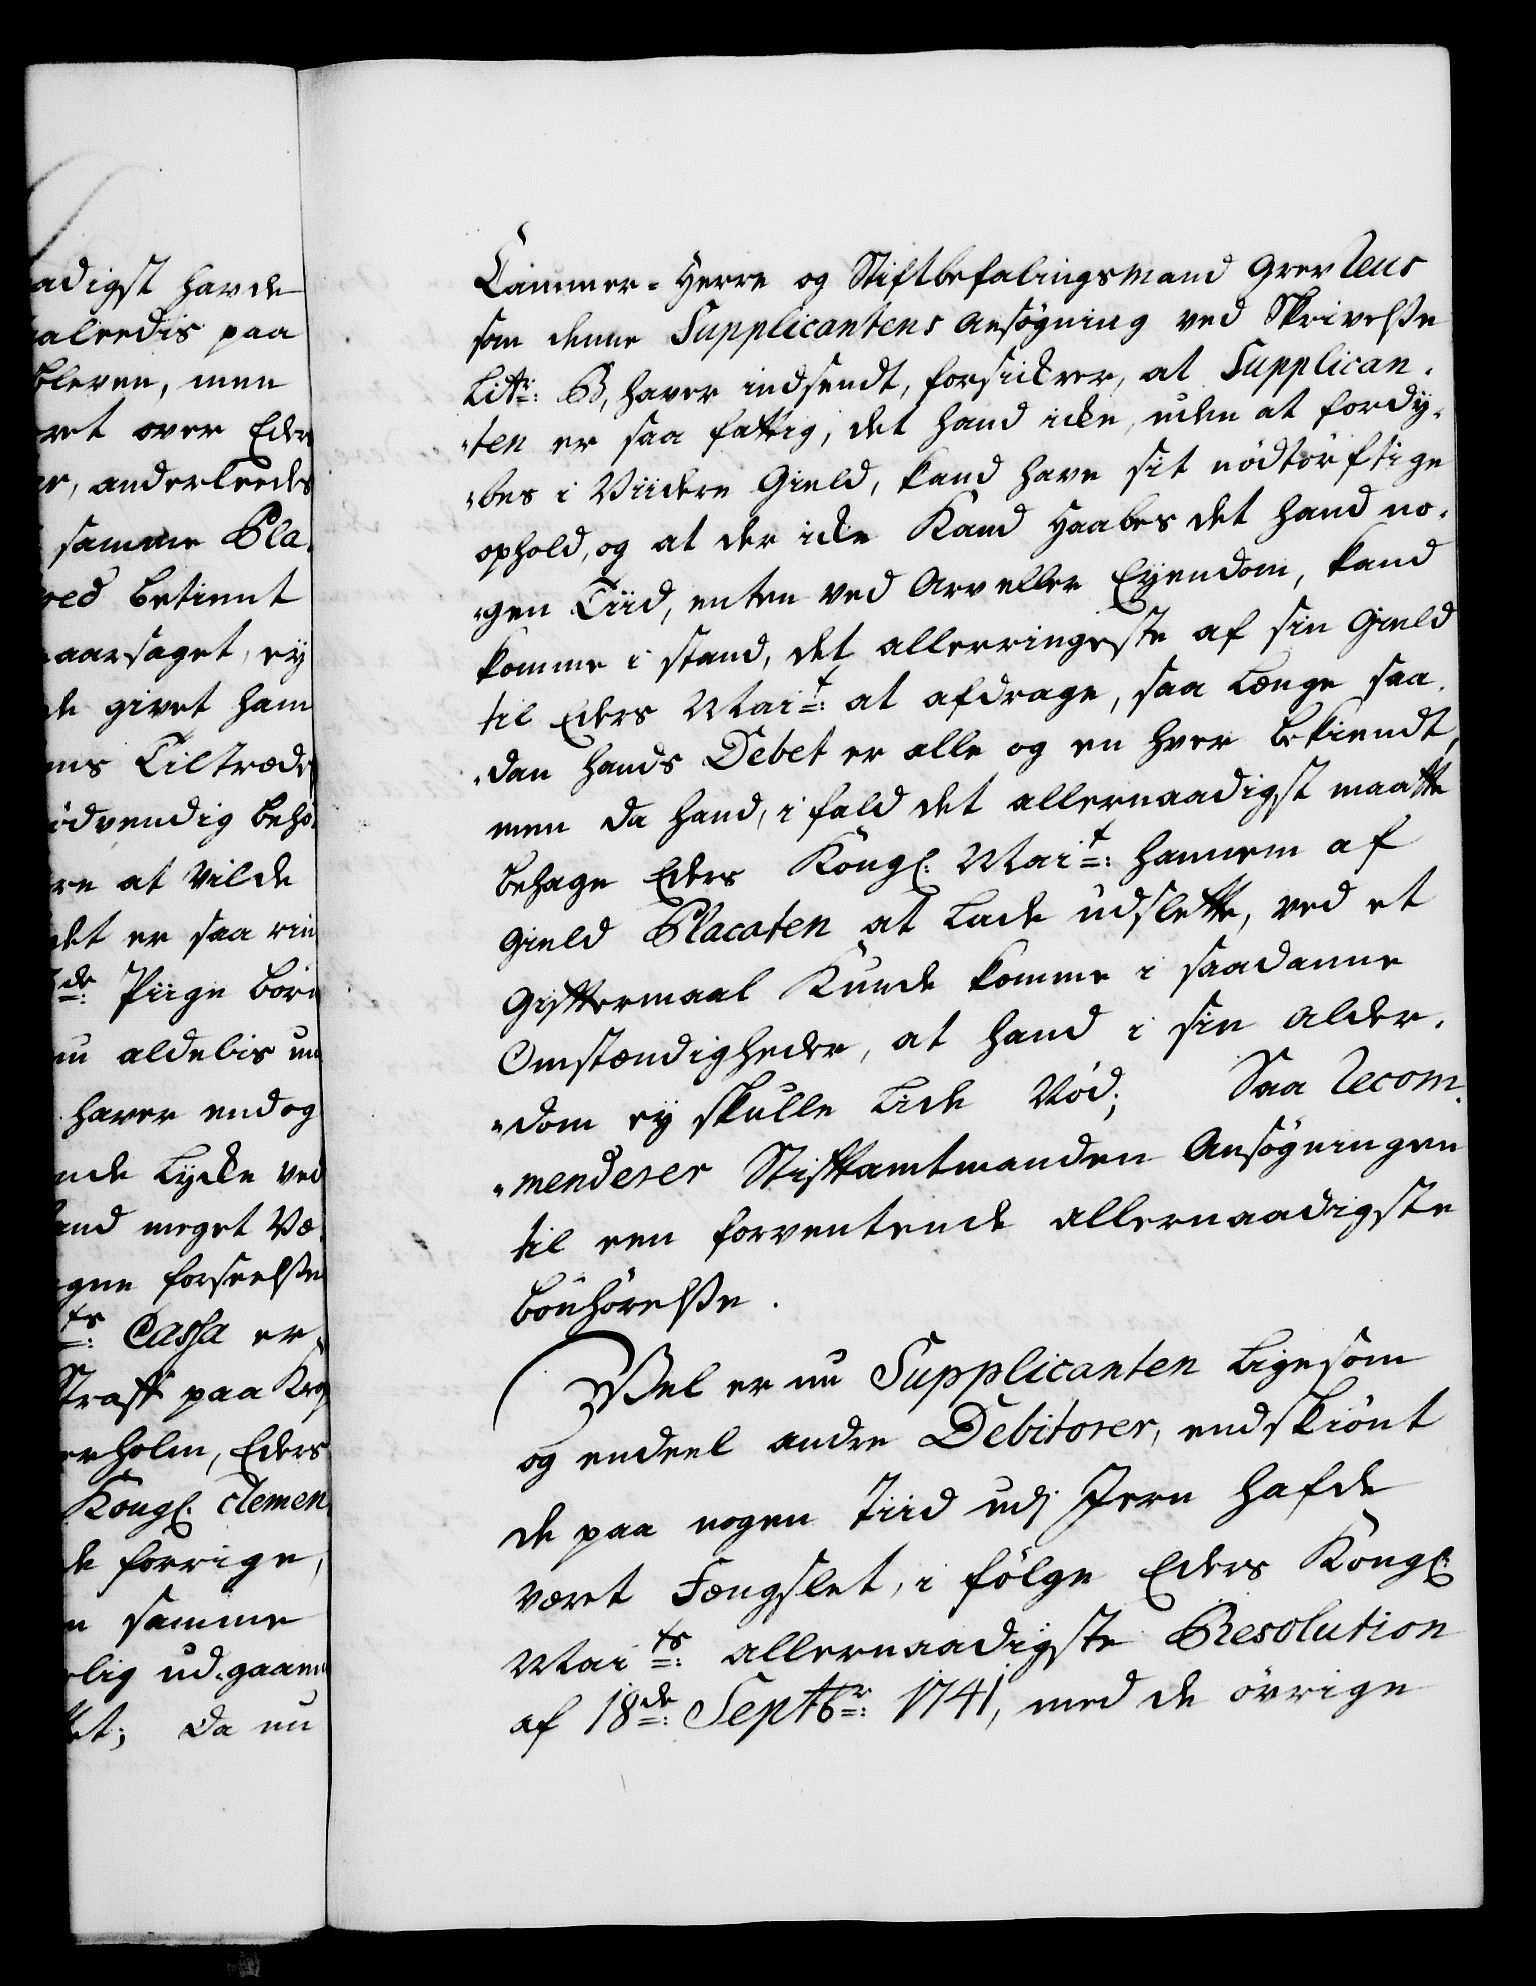 adigst havde
aleedis paa
bleven, men
ret over Eders
er, anderleedes
samme Pla-
ved betient
aarsaget, ey
de givet ham
ens Tiltræde
ödvendig behö
re at vilde
det er saa rin
de: Piige börn
nu aldelis un
haver endog
nde Lycke ved
and meget Væ-
gne forseelse
ts: Cassa er-
Straff paa
erholm, Eders
Kongl. Clemen
de forrige,
n samme
elig ud-gaaen
et; Da nu
Cammer-Herre og Stiftbefalingsmand Grev Reus
som denne Supplicantens Ansögning ved Skrivelse
Litr: B, haver indsendt, forsickrer, at Supplican-
-ten er saa fattig, det hand icke, uden at fordy-
-bes i Viidere Gield, kand have sit nödtörftige
ophold, og at der icke Kand Haabes det hand no-
-gen Tiid, enten ved Arv eller Eyendom, kand
komme i stand, det allerringeste af sin Gield
til Eders Mait: at afdrage, saa Længe saa-
-dan hands Debet er alle og en hver bekiendt,
men da hand, i fald det allernaadigst maatte
behage Eders Kongl. Mait: hannem af
Gield Placaten at Lade udslette, ved et
Gifttermaal Kunde komme i saadanne
Omstændigheder, at hand i sin Alder-
-dom ey skulle Lide Nöd; Saa Recom-
-menderer Stiftamtmanden Ansögningen
til een forventende allernaadigste
bönhörelse.
Vel er nu Supplicanten Ligesom
og endeel andre Debitorer, endskiönt
de paa nogen Tiid udj Jern hafde
været Fængslet, i fölge Eders Kongl:
Maits: allernaadigste Resolution
af 18de: Septbr: 1741, med de övrige